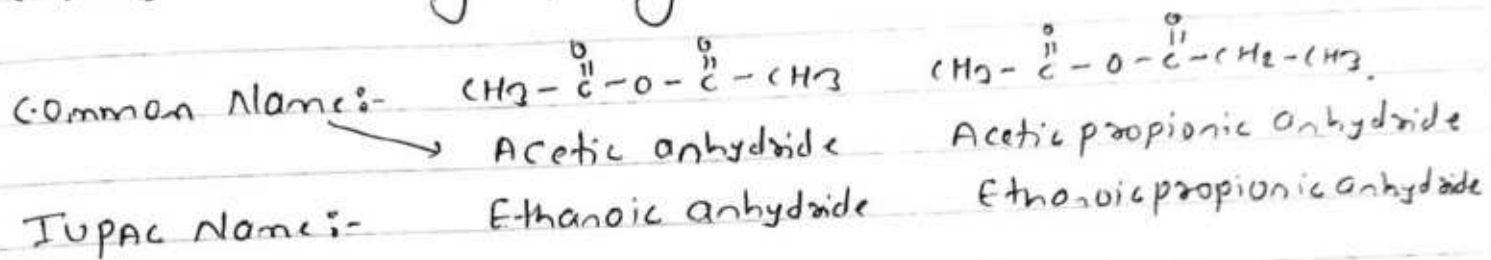 O O O O
|| || || ||
Common Name:- CH3 - C - O - C - CH3 CH3 - C - O - C - CH2 - CH3.
Acetic anhydride Acetic propionic anhydride
IUPAC Name:- Ethanoic anhydride Ethanoic propionic anhydride